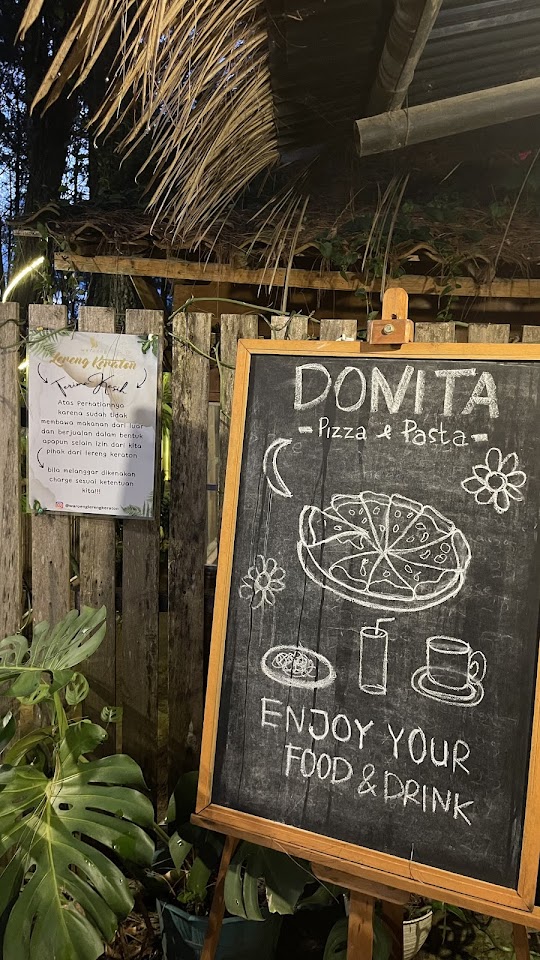 Lereng Keraton
Terima Kasih
Atas Perhatiannya
karena sudah tidak
membawa makanan dari luar
dan berjualan dalam bentuk
apapun selain izin dari kita
pihak dari lereng keraton
bila melanggar dikenakan
charge sesuai ketentuan
kita!!!
@waroenglerengkeraton
DONITA
- Pizza & Pasta -
ENJOY YOUR
FOOD & DRINK